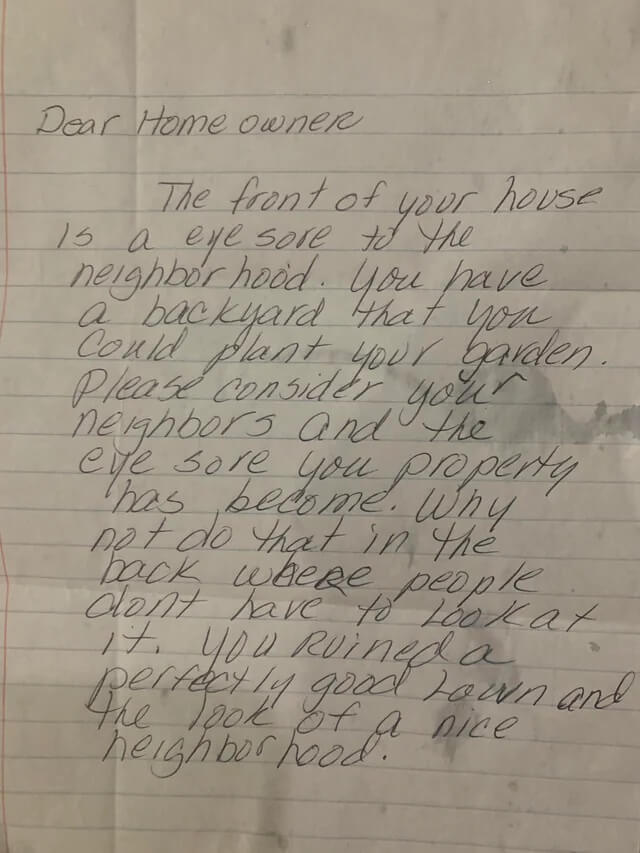 Dear Home owner
The front of your house
is a eye sore to the
neighborhood. You have
a backyard that you
could plant your garden.
Please consider your
neighbors and the
eye sore you property
has become. Why
not do that in the
back where people
dont have to look at
it. You Ruined a
perfectly good Lawn and
the look of a nice
neighborhood.